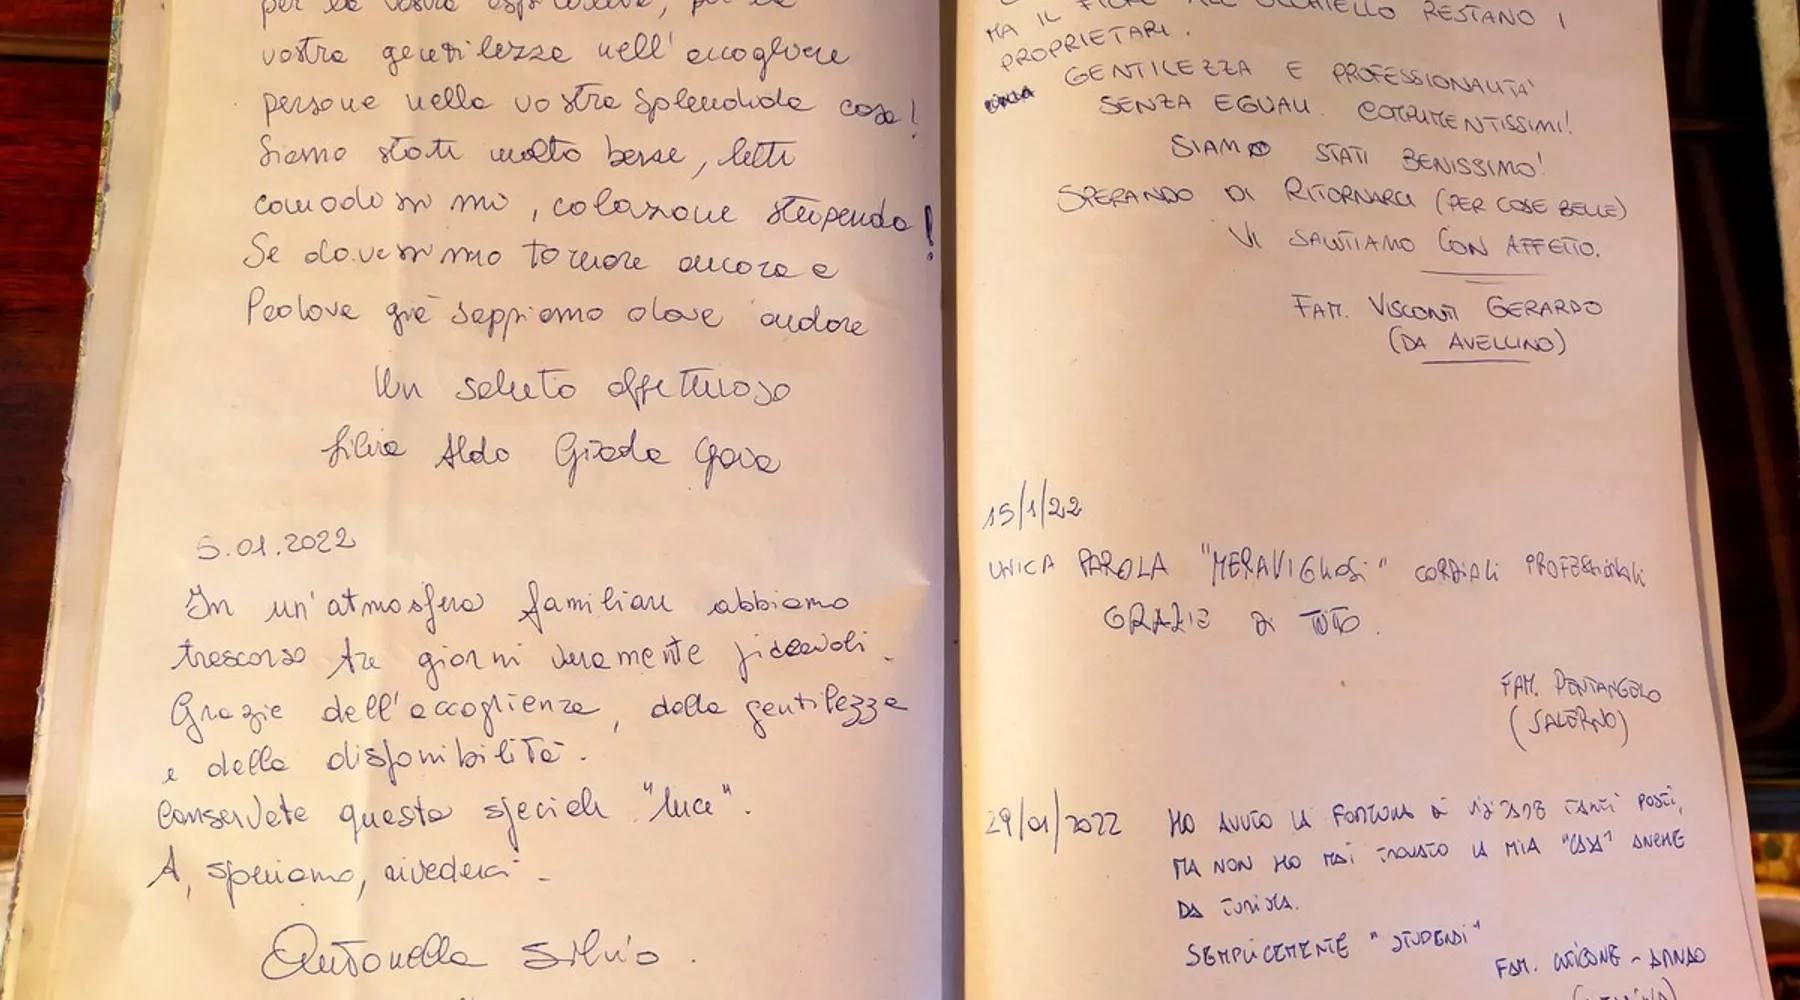 per la vostra
vostra gentilezza nell'accogliere
persone nella vostra splendida casa!
Siamo stati molto bene, letti
comodissimi, colazione stupenda!
Se dovessimo tornare ancora a
Padova già sappiamo dove andare
Un saluto affettuoso
Silvia Aldo Giada Gava
5.01.2022
In un'atmosfera familiare abbiamo
trascorso tre giorni veramente piacevoli.
Grazie dell'accoglienza, della gentilezza
e della disponibilità.
Conservate questa speciale "luce".
A, speriamo, rivederci.
Antonella Silvio.
MA IL FIORE ALL'OCCHIELLO RESTANO I
PROPRIETARI.
GENTILEZZA E PROFESSIONALITA'
SENZA EGUALI. COMPLIMENTISSIMI!
SIAMO STATI BENISSIMO!
SPERANDO DI RITORNARCI (PER COSE BELLE)
VI SALUTIAMO CON AFFETTO.
FAM. VISCONTI GERARDO
(DA AVELLINO)
15/1/22
UNICA PAROLA "MERAVIGLIOSI" CORDIALI PROFESSIONALI
GRAZIE DI TUTTO.
FAM. PENTANGELO
(SALERNO)
29/01/2022 HO AVUTO LA FORTUNA DI VISITARE TANTI POSTI,
MA NON HO MAI TROVATO LA MIA "CASA" ANCHE
DA TURISTA.
SEMPLICEMENTE "STUPENDI"
FAM.